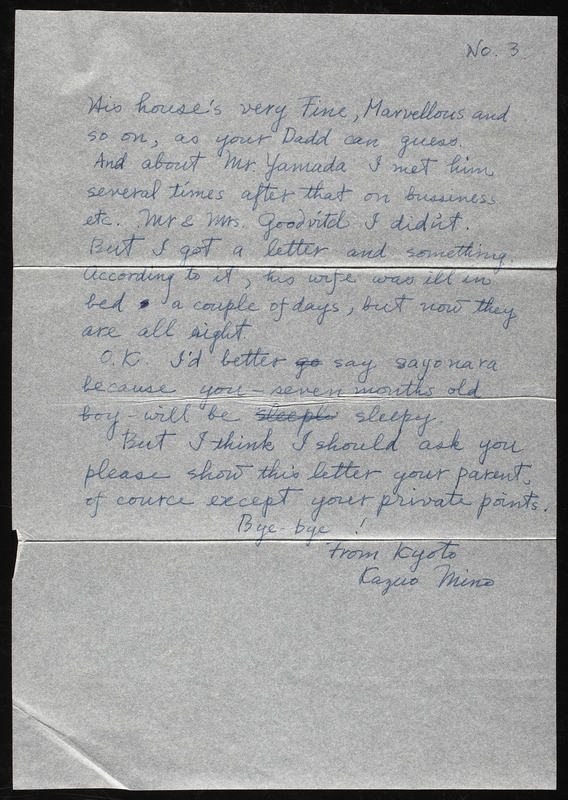 No. 3.
His house's very Fine, Marvellous and
so on, as your Dadd can guess.
And about Mr. Yamada I met him
several times after that on bussiness
etc. Mr & Mrs. Goodvitd I did'nt.
But I got a letter and something.
According to it, his wife was ill in
bed a couple of days, but now they
are all right.
O.K. I'd better go say sayonara
because you - seven months old
boy - will be sleeple sleepy.
But I think I should ask you
please show this letter your parent,
of cource except your private points.
Bye-bye !
From Kyoto
Kazuo Mino